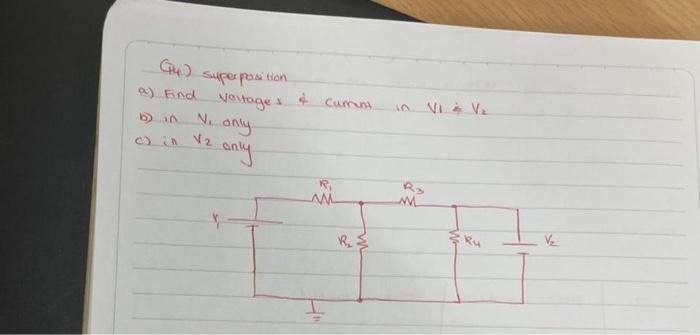 Q4) superposition
a) Find voltages & current in V1 & V2
b) in V1 only
c) in V2 only
R1 R3
V1 R2 R4 V2